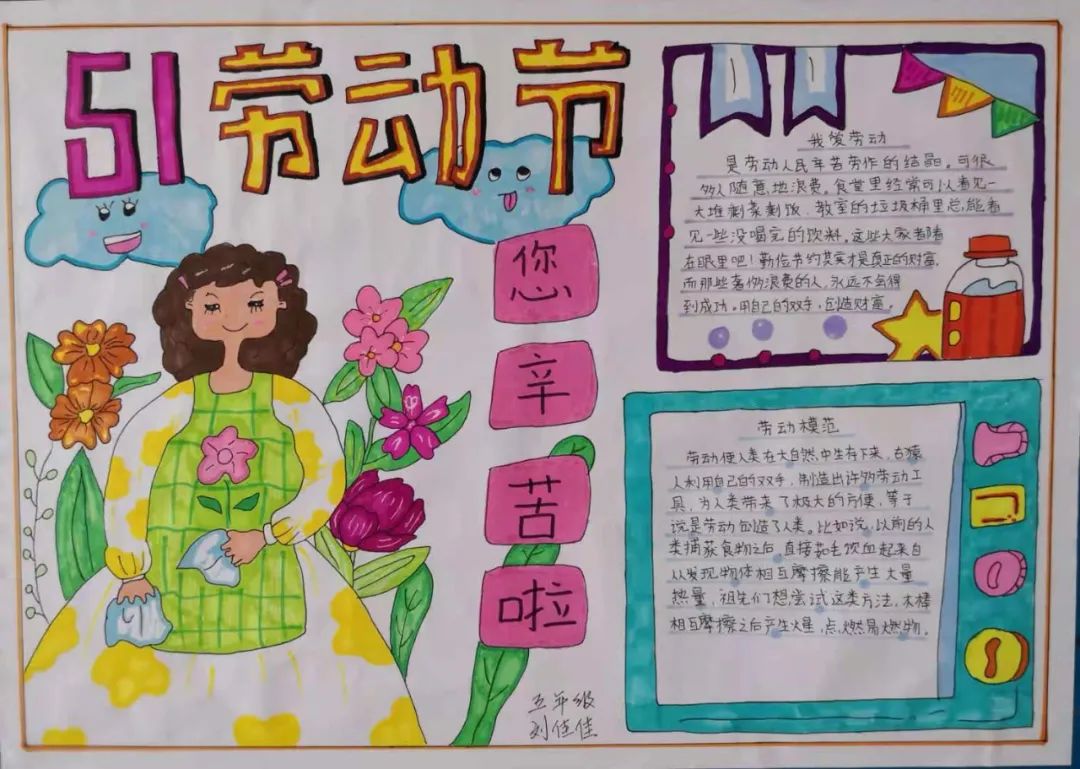 51劳动节
您
辛
苦
啦
我爱劳动
是劳动人民辛苦劳作的结晶。可很
多人随意地浪费。食堂里经常可以看见一
大堆剩菜剩饭，教室的垃圾桶里总能看
见一些没喝完的饮料。这些大家都看
在眼里吧！勤俭节约其实才是真正的财富，
而那些奢侈浪费的人，永远不会得
到成功。用自己的双手，创造财富。
劳动模范
劳动使人类在大自然中生存下来，古猿
人利用自己的双手，制造出许多劳动工
具，为人类带来了极大的方便，等于
说是劳动创造了人类。比如说，以前的人
类捕获食物之后，直接茹毛饮血起来自
从发现物体相互摩擦能产生大量
热量，祖先们想尝试这类方法，木棒
相互摩擦之后产生火星，点燃易燃物。
五年级
刘佳佳